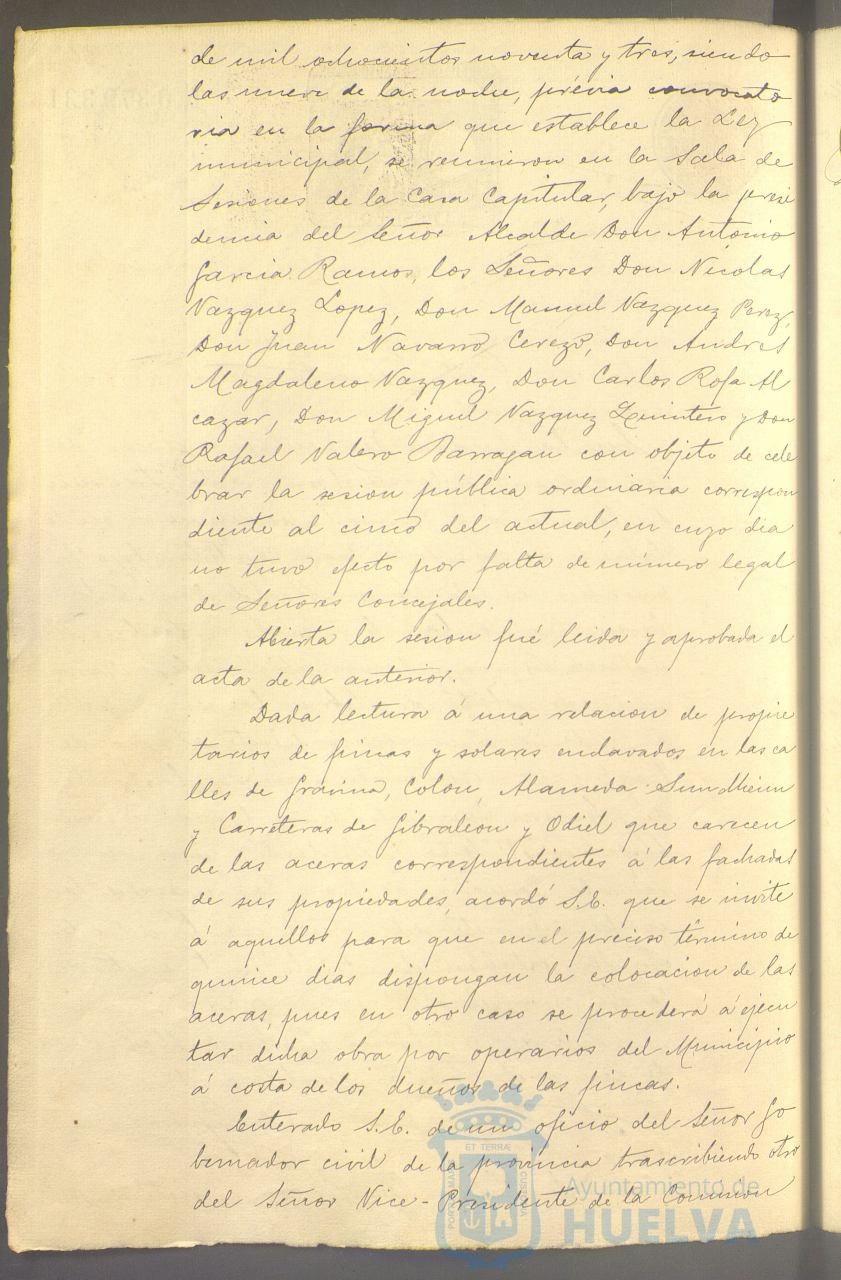 de mil ochocientos noventa y tres, siendo
las nueve de la noche, prévia convocato
ria en la forma que establece la Ley
municipal, se reunieron en la Sala de
Sesiones de la Casa Capitular, bajo la presi
dencia del Señor Alcalde Don Antonio
Garcia Ramos, los Señores Don Nicolas
Vazquez Lopez, Don Manuel Vazquez Perez,
Don Juan Navarro Cerezo, Don Andres
Magdaleno Vazquez, Don Carlos Rofa Al
cazar, Don Miguel Vazquez Quintero y Don
Rafael Valero Barragan con objeto de cele
brar la sesion pública ordinaria correspon
diente al cinco del actual, en cuyo dia
no tuvo efecto por falta de número legal
de Señores Concejales.
Abierta la sesion fué leida y aprobada el
acta de la anterior.
Dada lectura á una relacion de propie
tarios de fincas y solares enclavados en las ca
lles de Gravina, Colon, Alameda Sundheim
y Carreteras de Gibraleon y Odiel que carecen
de las aceras correspondientes á las fachadas
de sus propiedades, acordó S.E. que se invite
á aquellos para que en el preciso término de
quince dias dispongan la colocacion de las
aceras, pues en otro caso se procederá á ejecu
tar dicha obra por operarios del Municipio
á costa de los dueños de las fincas.
Enterado S.E. de un oficio del Señor Go
bernador civil de la provincia trascribiendo otro
del Señor Vice-Presidente de la Comision
ET TERRÆ
PORTUS MARIS
CUSTODIA
Ayuntamiento de
HUELVA